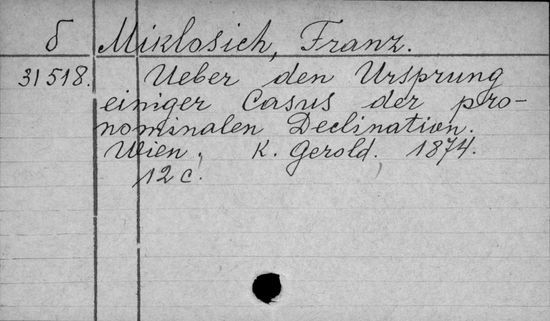 б Miklosich, Franz.
31518. Ueber den Ursprung
einiger Casus der pro-
nominalen Declination.
Wien, K. Gerold. 1874.
12 c.